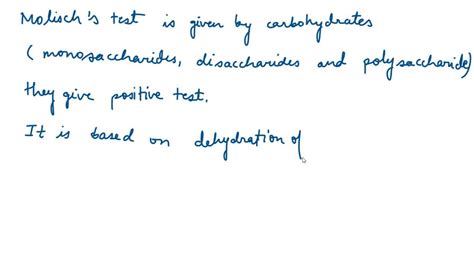 Molisch's test is given by carbohydrates
(monosaccharides, disaccharides and polysaccharide)
they give positive test.
It is based on dehydration of